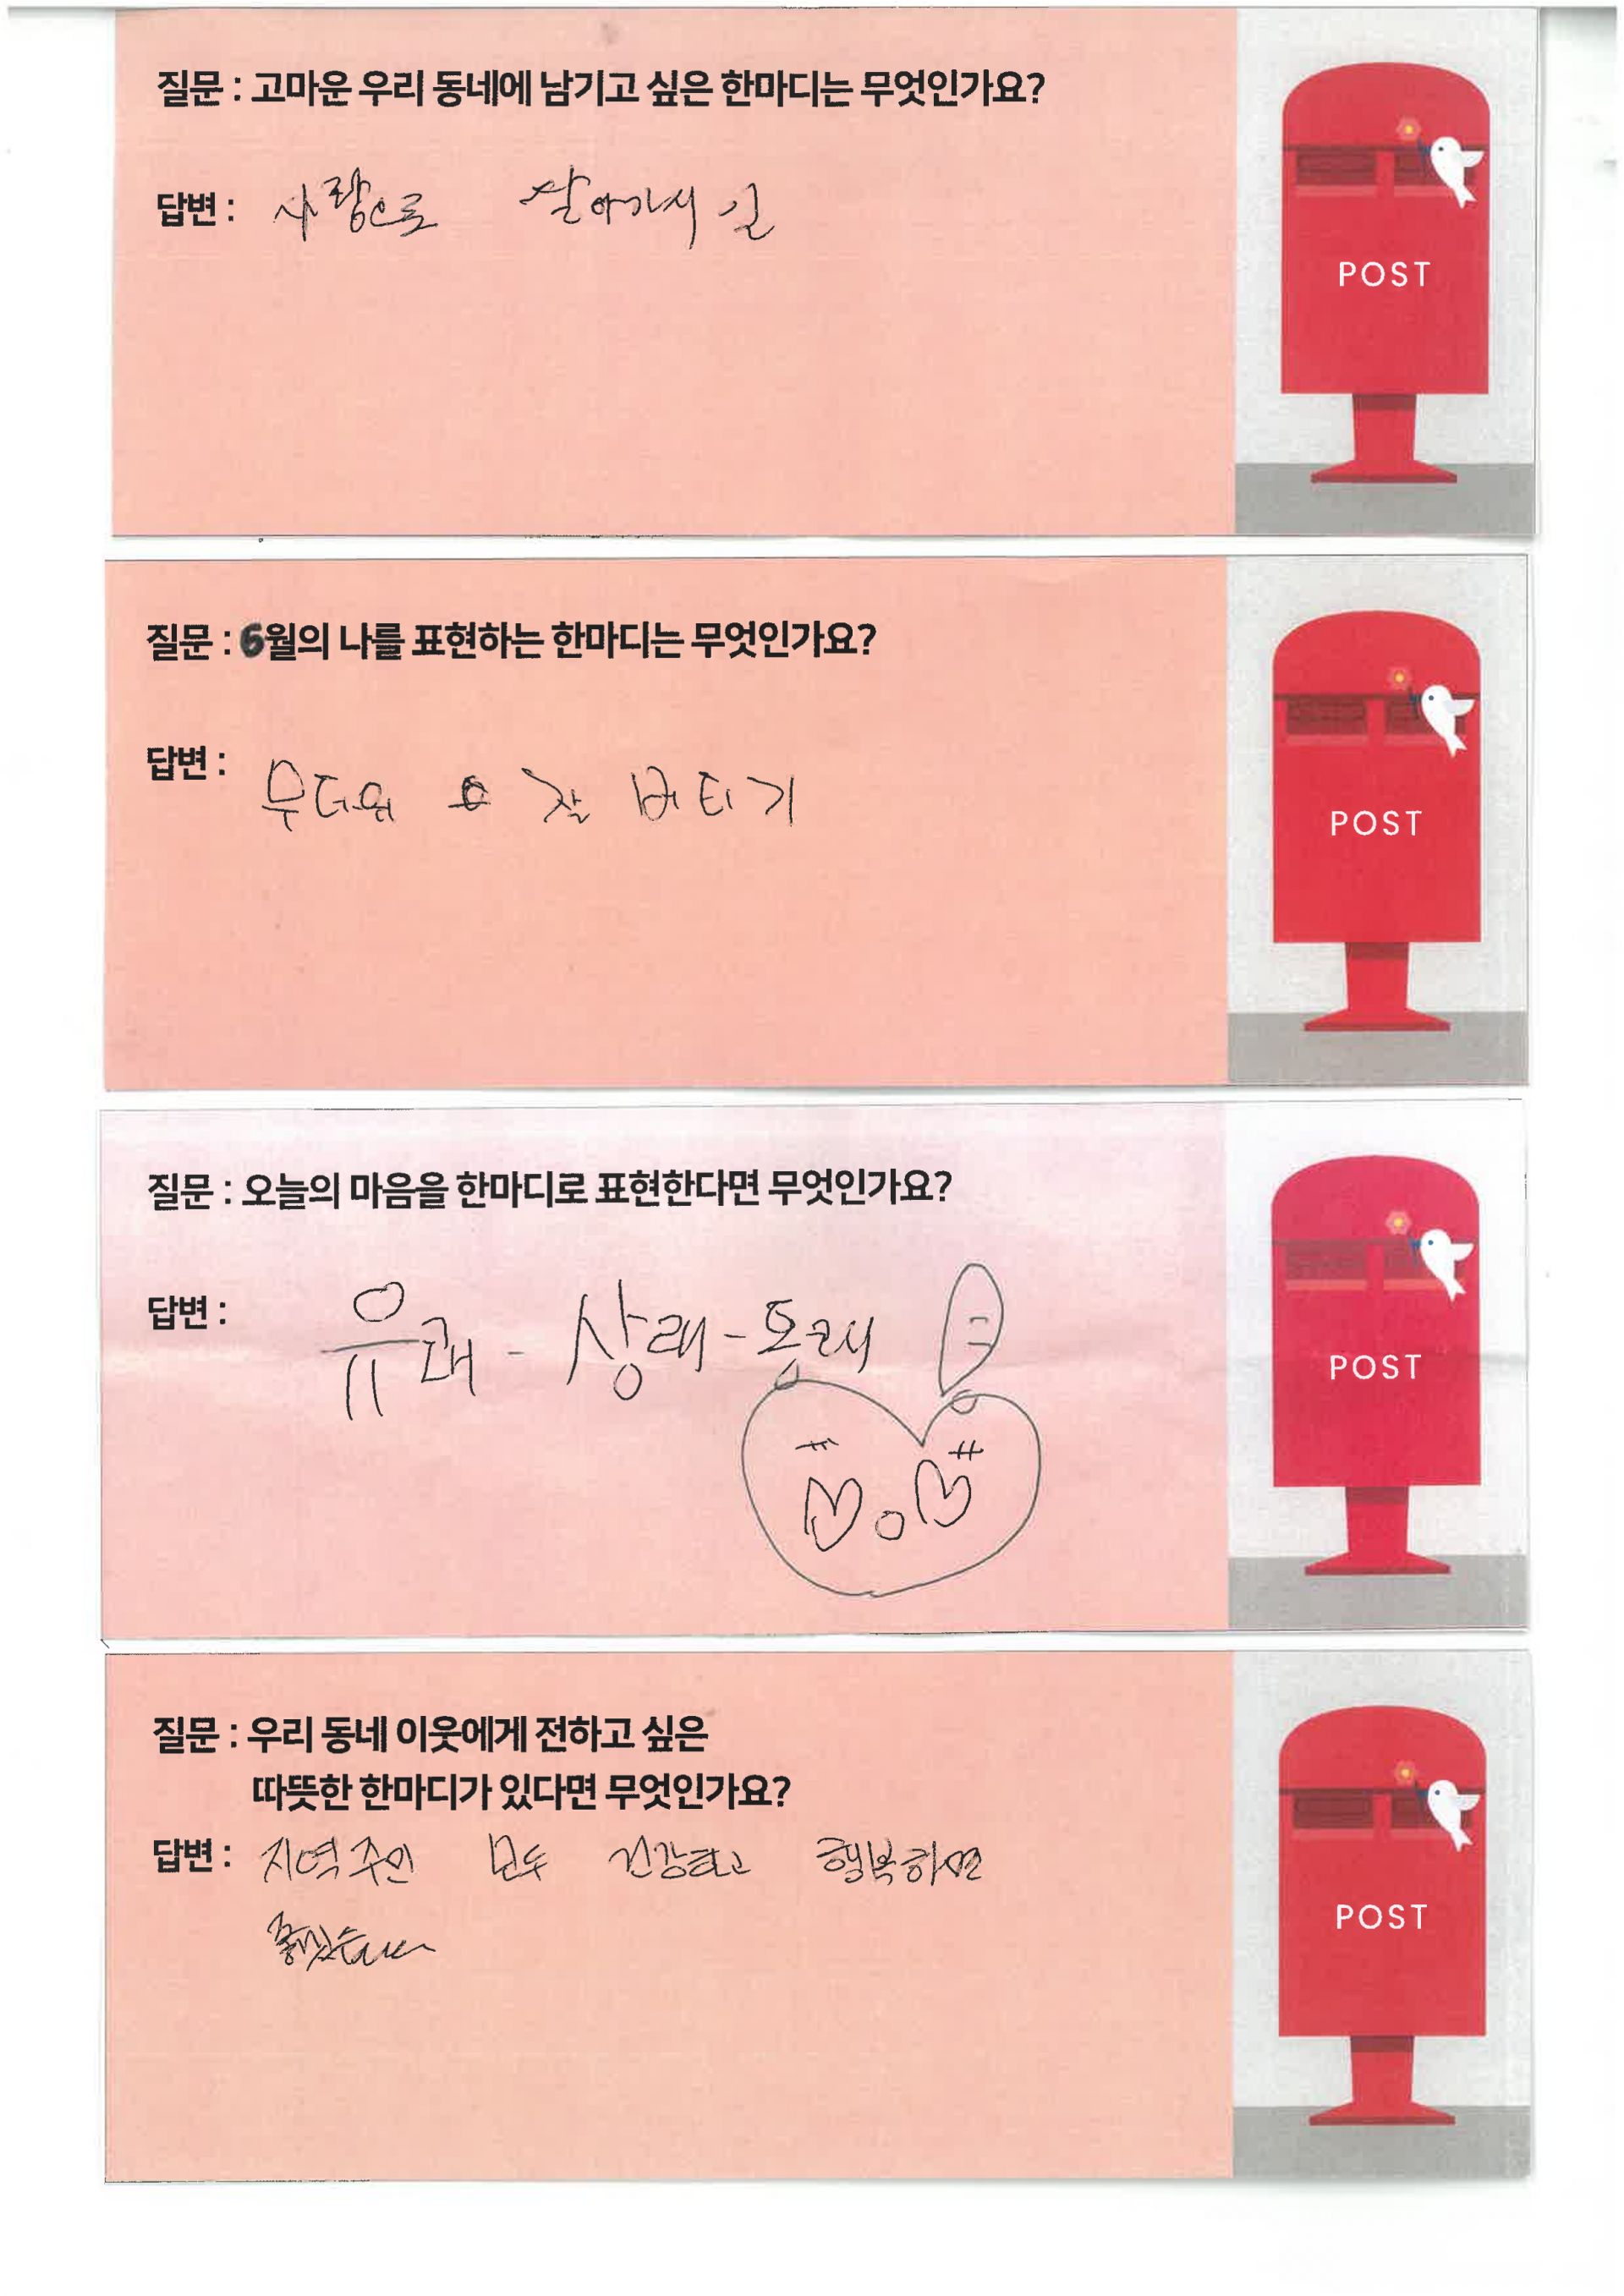 질문 : 고마운 우리 동네에 남기고 싶은 한마디는 무엇인가요?
답변 : 사랑으로 살아가시길
POST
질문 : 6월의 나를 표현하는 한마디는 무엇인가요?
답변 : 무더위 잘 버티기
POST
질문 : 오늘의 마음을 한마디로 표현한다면 무엇인가요?
답변 : 유쾌 - 상쾌 - 통쾌
POST
질문 : 우리 동네 이웃에게 전하고 싶은
따뜻한 한마디가 있다면 무엇인가요?
답변 : 지역주민 모두 건강하고 행복하면
좋겠습니다
POST